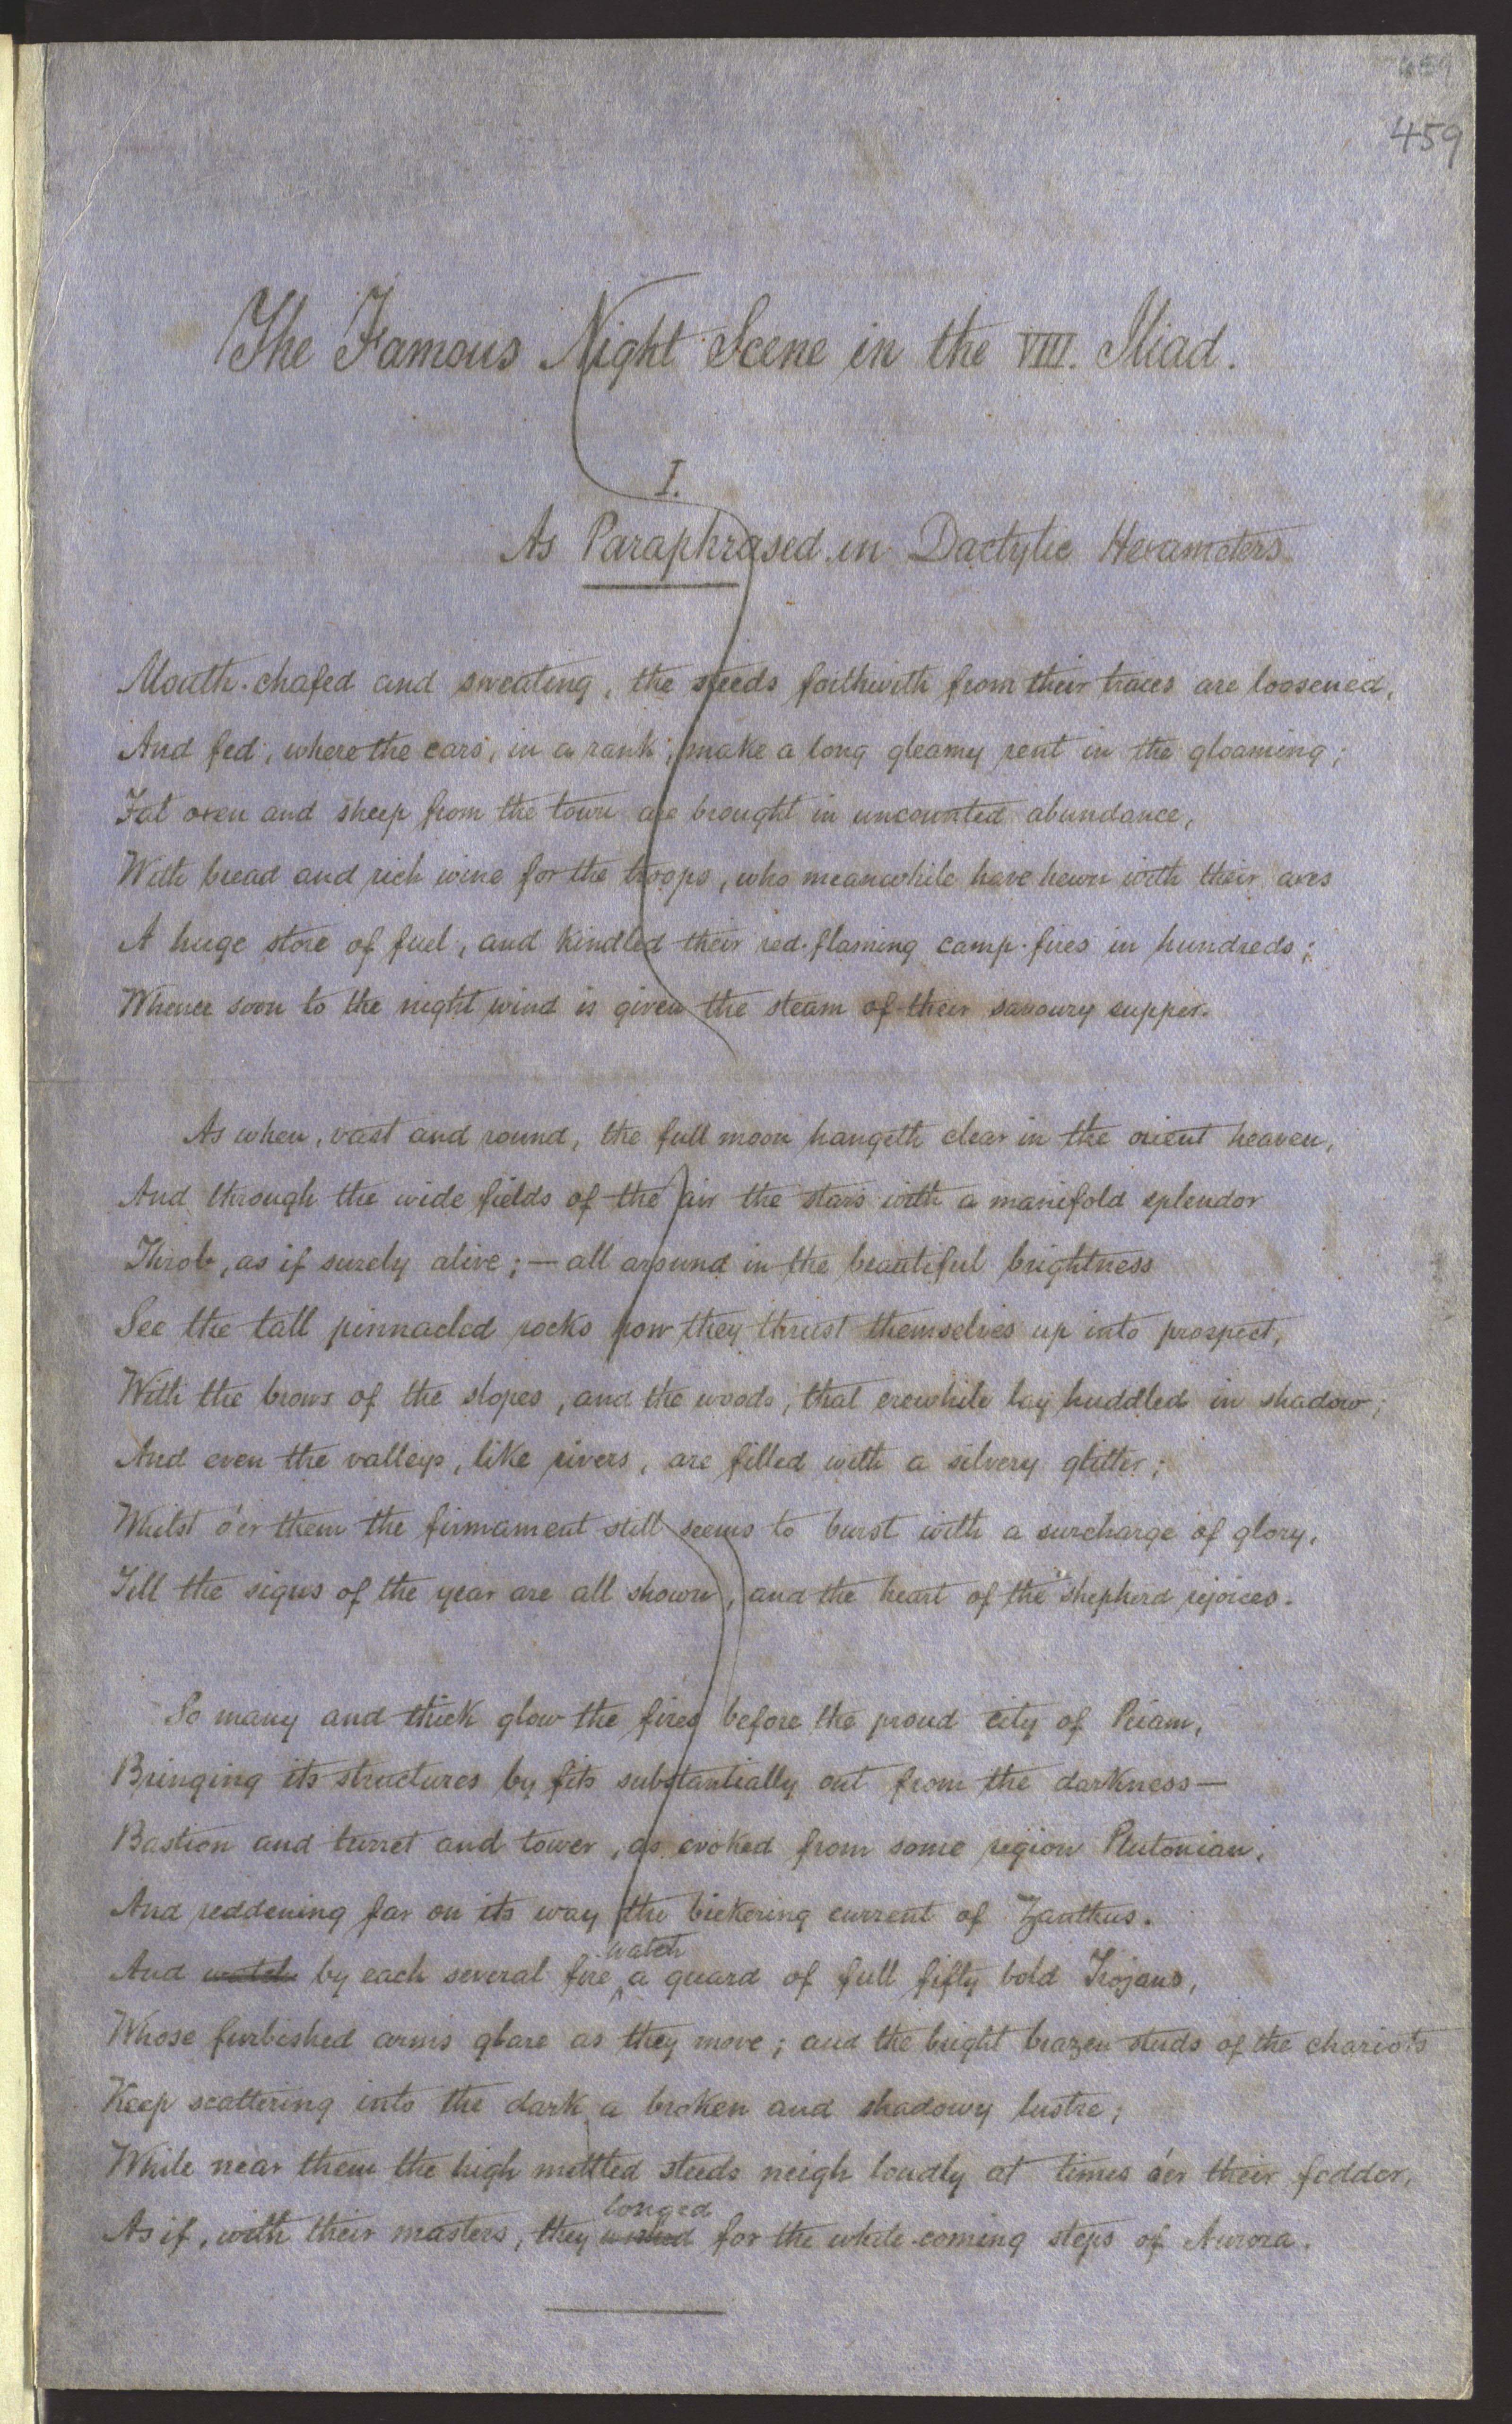 459
The Famous Night Scene in the VIII. Iliad.
I.
As Paraphrased in Dactylic Hexameters.
Mouth-chafed and sweating, the steeds forthwith from their traces are loosened,
And fed, where the cars, in a rank, make a long gleamy rent in the gloaming;
Fat oxen and sheep from the town are brought in uncounted abundance,
With bread and rich wine for the troops, who meanwhile have hewn with their axes
A huge store of fuel, and kindled their red-flaming camp-fires in hundreds;
Whence soon to the night wind is given the steam of their savoury supper.
As when, vast and round, the full moon hangeth clear in the orient heaven,
And through the wide fields of the air the stars with a manifold splendor
Throb, as if surely alive;—all around in the beautiful brightness
See the tall pinnacled rocks how they thrust themselves up into prospect,
With the brows of the slopes, and the woods, that erewhile lay huddled in shadow;
And even the valleys, like rivers, are filled with a silvery glitter;
Whilst o'er them the firmament still seems to burst with a surcharge of glory,
Till the signs of the year are all shown, and the heart of the shepherd rejoices.
So many and thick glow the fires before the proud city of Priam,
Bringing its structures by fits substantially out from the darkness—
Bastion and turret and tower, as evoked from some region Plutonian,
And reddening far on its way the bickering current of Zanthus.
And watch by each several fire watch a guard of full fifty bold Trojans,
Whose furbished arms glare as they move; and the bright brazen studs of the chariots
Keep scattering into the dark a broken and shadowy lustre;
While near them the high mettled steeds neigh loudly at times o'er their fodder,
As if, with their masters, they wished longed for the white-coming steps of Aurora.